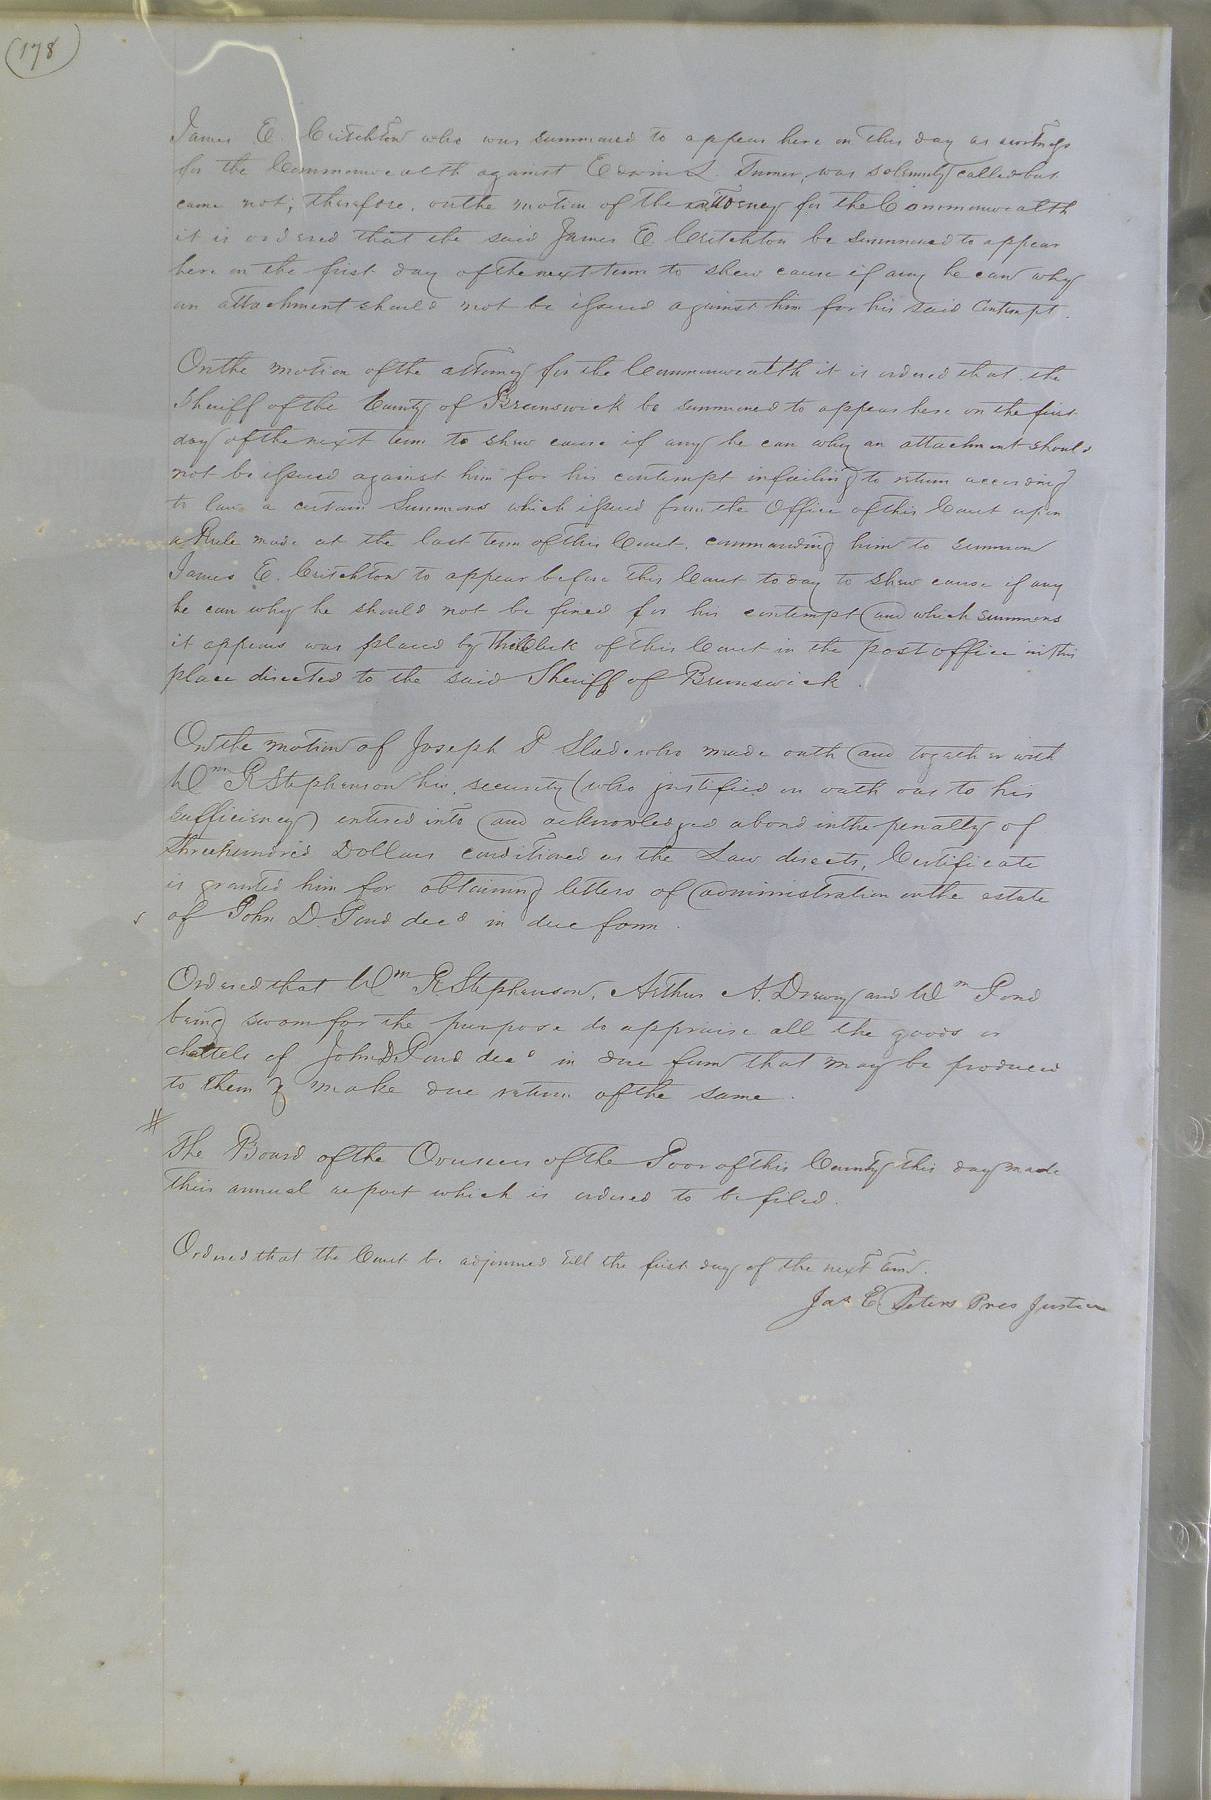 (178)
James E. Critchton who was summoned to appear here on this day as witness
for the Commonwealth against Edwin L. Turner, was solemnly called but
came not; therefore, on the motion of the attorney for the Commonwealth
it is ordered that the said James E Critchton be summoned to appear
here on the first day of the next term to shew cause if any he can why
an attachment should not be issued against him for his said Contempt.
On the motion of the attorney for the Commonwealth it is ordered that the
Sheriff of the County of Brunswick be summoned to appear here on the first
day of the next term to shew cause if any he can why an attachment should
not be issued against him for his contempt in failing to return according
to law a certain Summons which issued from the Office of this Court upon
a Rule made at the last term of this Court, commanding him to summon
James E. Critchton to appear before this Court today to shew cause if any
he can why he should not be fined for his contempt and which summons
it appears was placed by the Clerk of this Court in the post office in this
place directed to the said Sheriff of Brunswick.
On the motion of Joseph P Slade who made oath and together with
Wm R Stephenson his security (who justified on oath as to his
sufficiency) entered into and acknowledged a bond in the penalty of
three hundred Dollars conditioned as the Law directs, Certificate
is granted him for obtaining letters of administration on the estate
of John D. Pond decd in due form.
Ordered that Wm R Stephenson, Arthur A. Drewry and Wm Pond
being sworn for the purpose do appraise all the goods or
chattels of John D Pond decd in due form that may be produced
to them & make due return of the same.
The Board of the Overseers of the Poor of this County this day made
their annual report which is ordered to be filed.
Ordered that the Court be adjourned till the first day of the next term.
Jas E. Peters Pres Justice